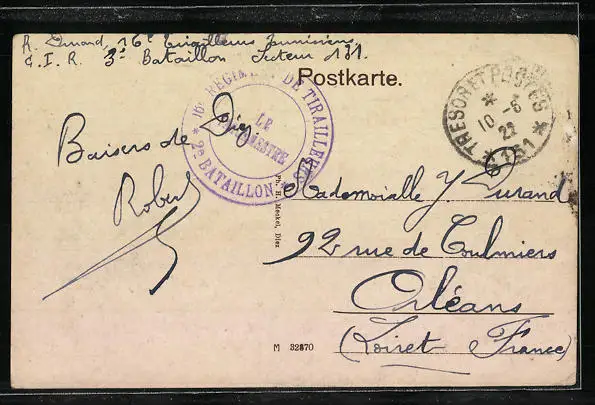 R. Durand, 16e Tirailleurs Tunisiens
C. I. R. 3e Bataillon Secteur 131
Postkarte.
16e REGIMENT DE TIRAILLEURS
LE
VAGUEMESTRE
* 2e BATAILLON *
* TRESOR ET POSTES *
* 10 -6
22
131
Baisers de Diez
Robert
Mademoiselle J. Durand
92 rue de Coulmiers
Orléans
(Loiret France)
Ph. H. Meckel, Diez
M 32870